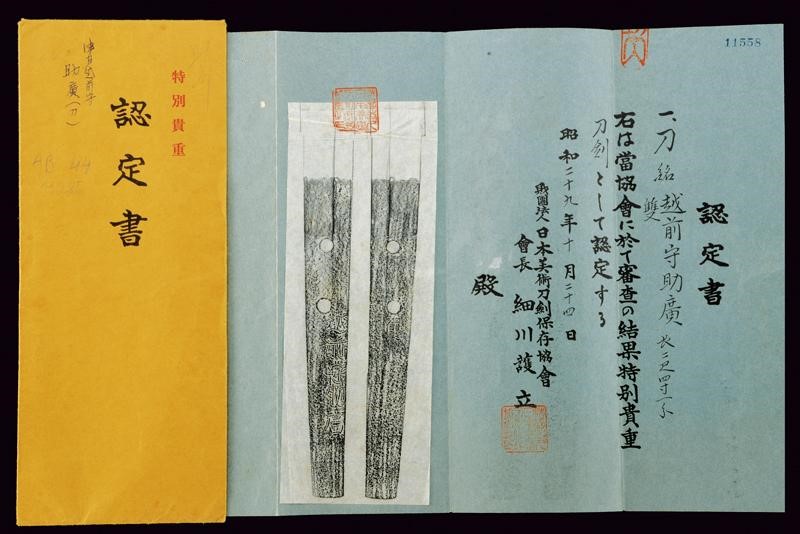 特別貴重
認定書
助廣(刀)
11558
認定書
一、刀 銘 越前守助廣 長二尺四寸一分
雙
右は當協會に於て審査の結果特別貴重
刀劍として認定する
昭和二十九年十月二十四日
財團法人日本美術刀劍保存協會
會長 細川護立
殿